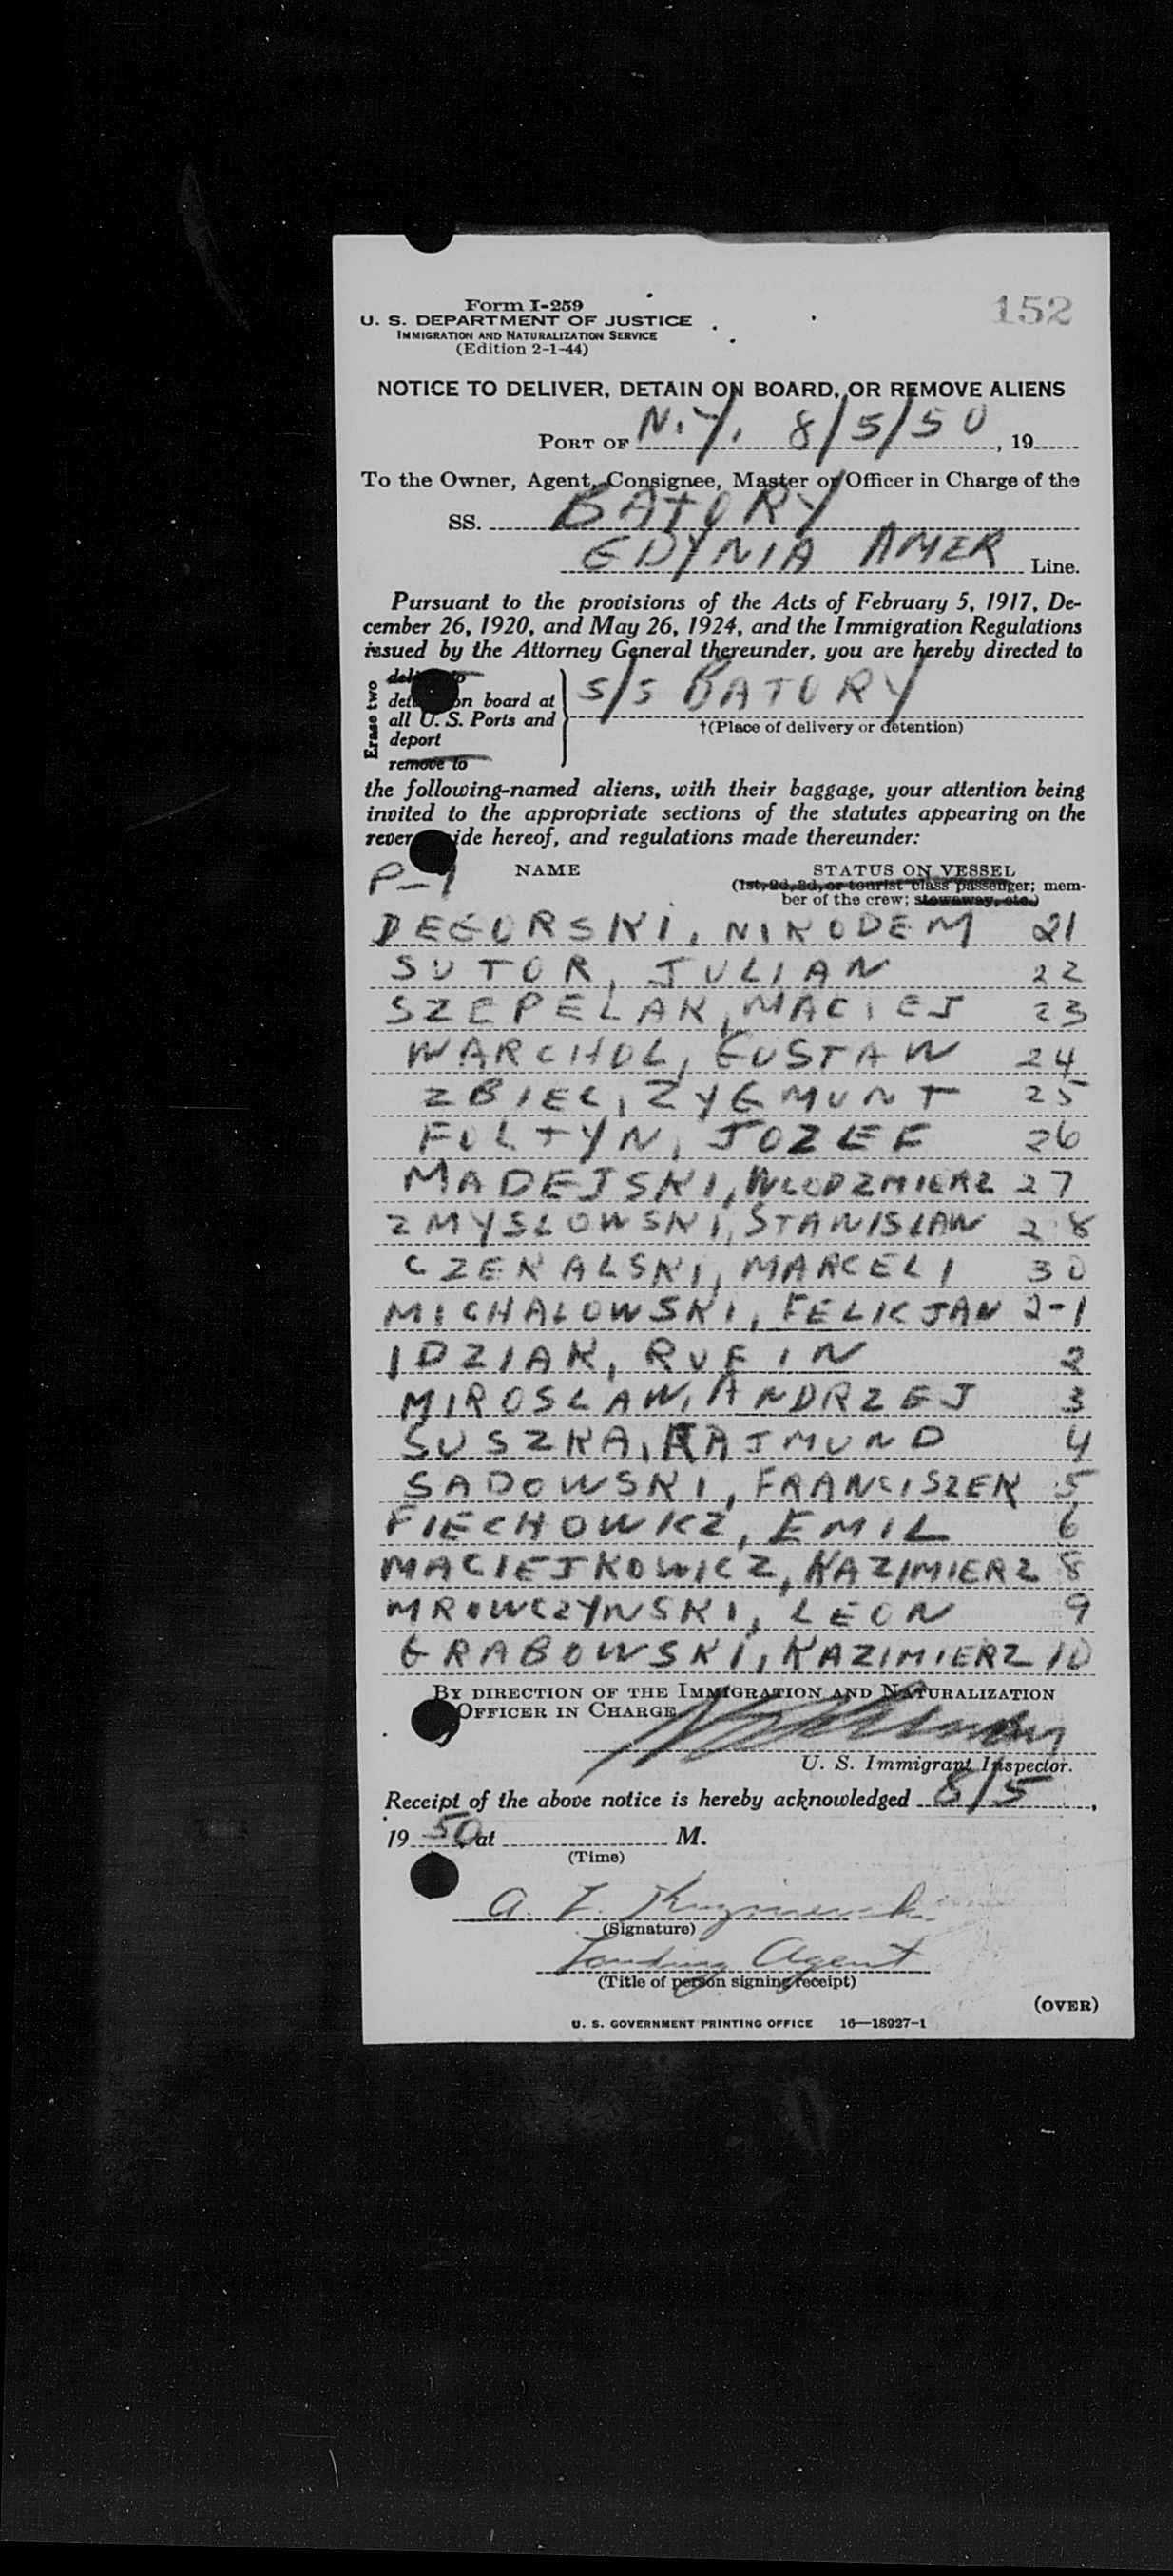 Form I-259
152
U. S. DEPARTMENT OF JUSTICE
IMMIGRATION AND NATURALIZATION SERVICE
(Edition 2-1-44)
NOTICE TO DELIVER, DETAIN ON BOARD, OR REMOVE ALIENS
PORT OF N.Y. 8/5/50, 19
To the Owner, Agent, Consignee, Master or Officer in Charge of the
SS. BATORY
GDYNIA AMER Line.
Pursuant to the provisions of the Acts of February 5, 1917, De-
cember 26, 1920, and May 26, 1924, and the Immigration Regulations
issued by the Attorney General thereunder, you are hereby directed to
Erase two
on board at
all U. S. Ports and
deport
remove to
S/S BATORY
†(Place of delivery or detention)
the following-named aliens, with their baggage, your attention being
invited to the appropriate sections of the statutes appearing on the
hereof, and regulations made thereunder:
P-1 NAME STATUS ON VESSEL
(1st, 2d, 3d, or tourist class passenger; mem-
ber of the crew; stowaway, etc.)
DEGORSKI, NIKODEM 21
SUTOR, JULIAN 22
SZEPELAK, MACIEJ 23
WARCHOL, GUSTAW 24
ZBIEC, ZYGMUNT 25
FOLTYN, JOZEF 26
MADEJSKI, WLODZMIERZ 27
ZMYSLOWSKI, STANISLAW 28
CZEKALSKI, MARCELI 30
MICHALOWSKI, FELIKJAN 2-1
IDZIAK, RUFIN 2
MIROSLAW, ANDRZEJ 3
SUSZKA, RAJMUND 4
SADOWSKI, FRANCISZEK 5
FIECHOWKZ, EMIL 6
MACIEJKOWICZ, KAZIMIERZ 8
MROWCZYNSKI, LEON 9
GRABOWSKI, KAZIMIERZ 10
BY DIRECTION OF THE IMMIGRATION AND NATURALIZATION
OFFICER IN CHARGE
U. S. Immigrant Inspector.
Receipt of the above notice is hereby acknowledged 8/5,
19 50 at M.
(Time)
A. Z.
(Signature)
Landing Agent
(Title of person signing receipt)
(OVER)
U. S. GOVERNMENT PRINTING OFFICE 16—18927-1